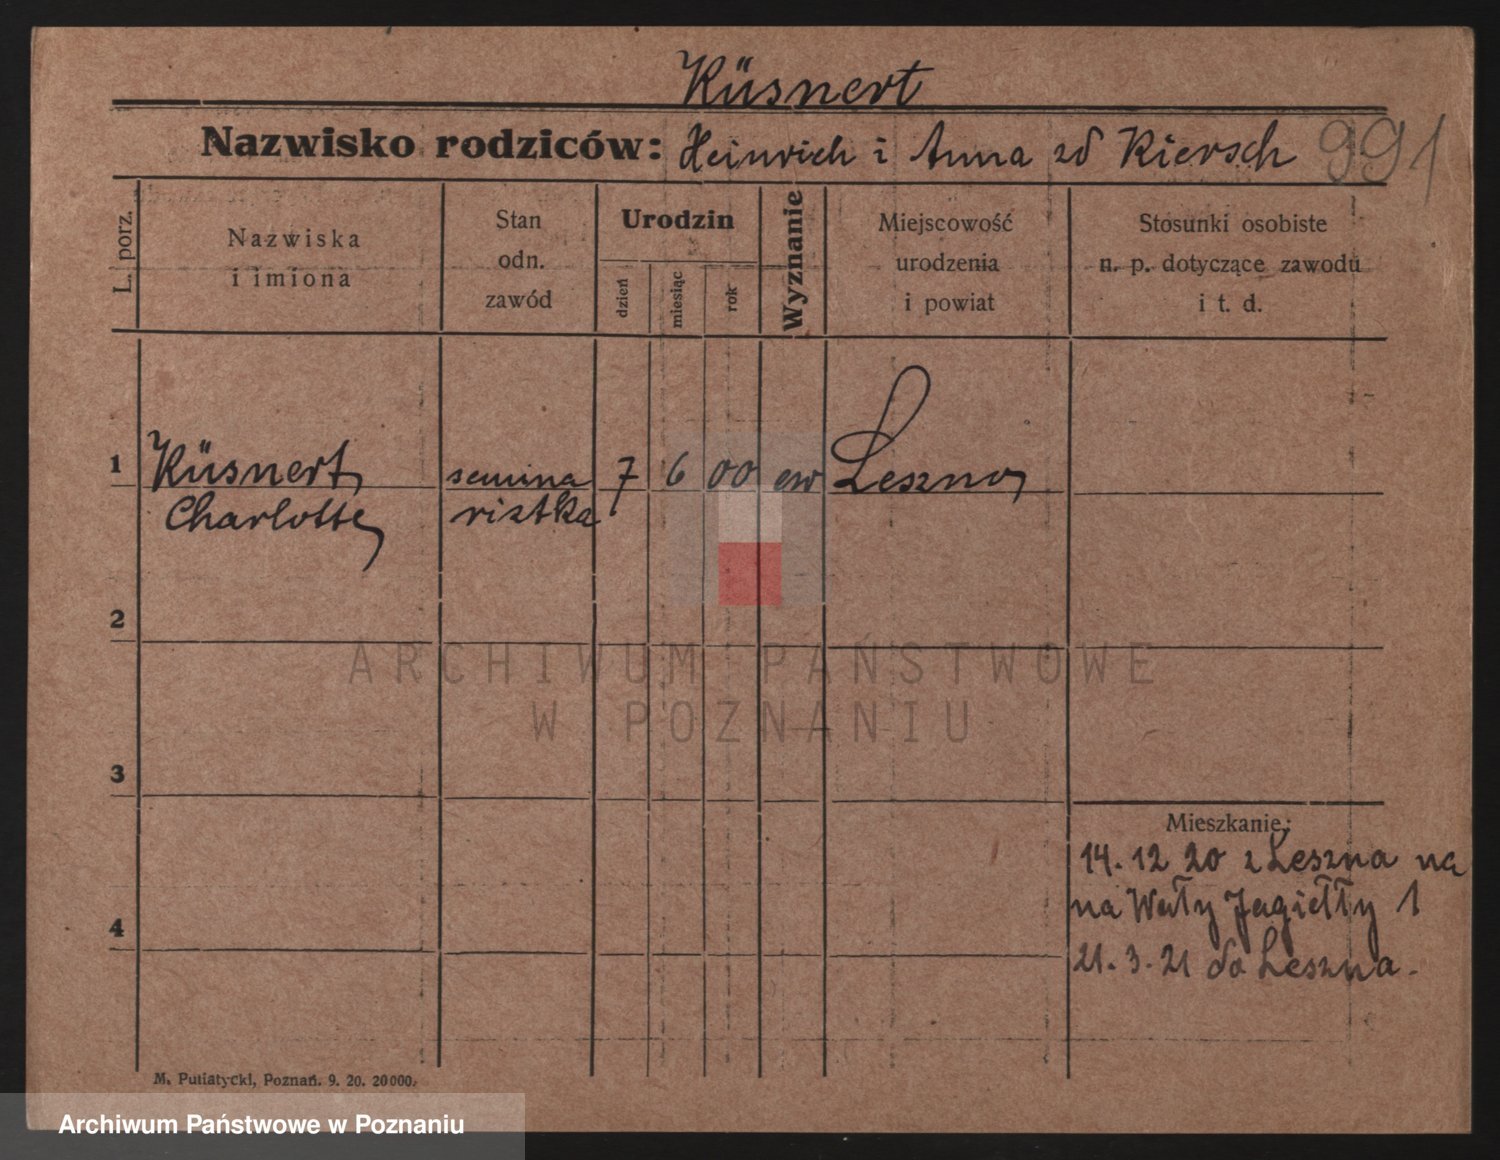 Küsnert
Nazwisko rodziców: Heinrich i Anna zd Kiersch 991
L. porz.
Nazwiska
i imiona
Stan
odn.
zawód
Urodzin
dzień
miesiąc
rok
Wyznanie
Miejscowość
urodzenia
i powiat
Stosunki osobiste
n. p. dotyczące zawodu
i t. d.
1 Küsnert semina 7 6 00 ew Leszno
Charlotte ristka
2
3
Mieszkanie:
14. 12 20 z Leszna na
na Wały Jagiełły 1
4
21. 3. 21 do Leszna.
M. Putiatycki, Poznań. 9. 20. 20000.
ARCHIWUM PAŃSTWOWE
W POZNANIU
Archiwum Państwowe w Poznaniu